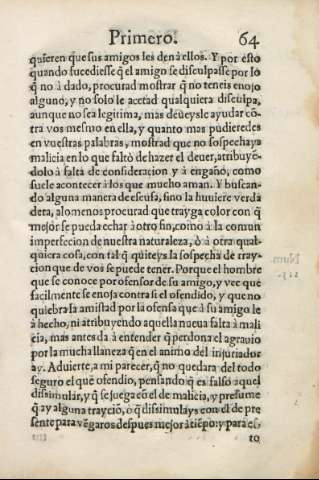 Primero. 64
quieren que sus amigos les den à ellos. Y por esto
quando sucediesse q̃ el amigo se disculpasse por lo
q̃ no à dado, procurad mostrar q̃ no teneis enojo
alguno, y no solo le acetad qualquiera disculpa,
aunque no sea legitima, mas deueysle ayudar cõ-
tra vos mesmo en ella, y quanto mas pudieredes
en vuestras palabras, mostrad que no sospechays
malicia en lo que faltò de hazer el deuer, atribuyẽ-
dolo à falta de consideracion y à engaño, como
suele acontecer à los que mucho aman. Y buscan-
do alguna manera de escusa, sino la huuiere verda
dera, alomenos procurad que trayga color con q̃
mejor se pueda echar à otro fin, como à la comun
imperfecion de nuestra naturaleza, ò à otra qual-
quiera cosa, con tal q̃ quiteys la sospecha de tray-
cion que de vos se puede tener. Porque el hombre
que se conoce por ofensor de su amigo, y vee que
facilmente se enoja contra si el ofendido, y que no
quiebra la amistad por la ofensa que à su amigo le
à hecho, ni atribuyendo aquella nueua falta à mali
cia, mas antes da à entender q̃ perdona el agrauio
por la mucha llaneza q̃ en el animo del injuriador
ay. Aduierte, a mi parecer, q̃ no quedara del todo
seguro el que ofendio, pensando q̃ es falso aquel
dissimular, y q̃ se juega cõ el de malicia, y presume
q̃ ay alguna trayciõ, ò q̃ dissimulays con el de pre
sente para vẽgaros despues mejor à tiẽpo: y para es,
to